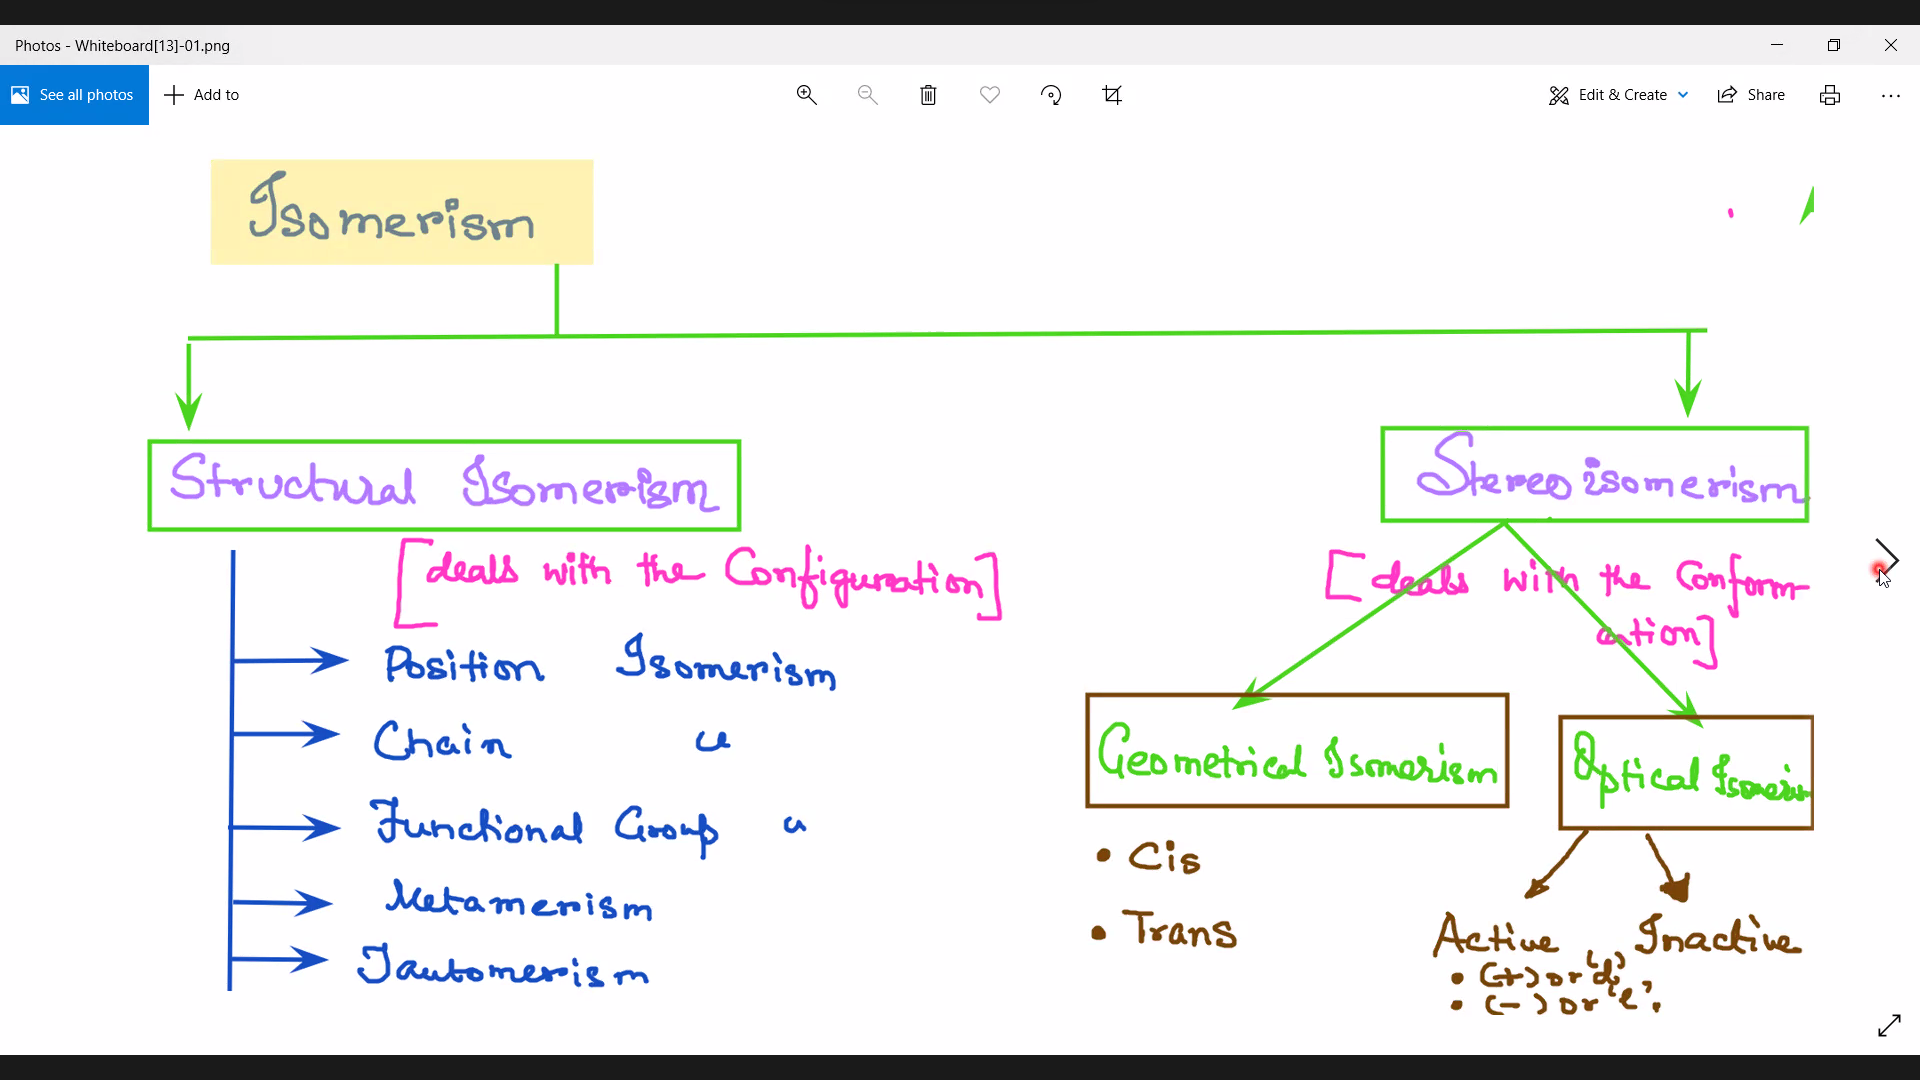 Photos - Whiteboard[13]-01.png
See all photos
Add to
Edit & Create
Share
Isomerism
Structural Isomerism
[deals with the Configuration]
Position Isomerism
Chain "
Functional Group "
Metamerism
Tautomerism
Stereoisomerism
[deals with the Conform-
ation]
Geometrical Isomerism
• Cis
• Trans
Optical Isomerism
Active
• (+) or 'd'
• (-) or 'l'.
Inactive